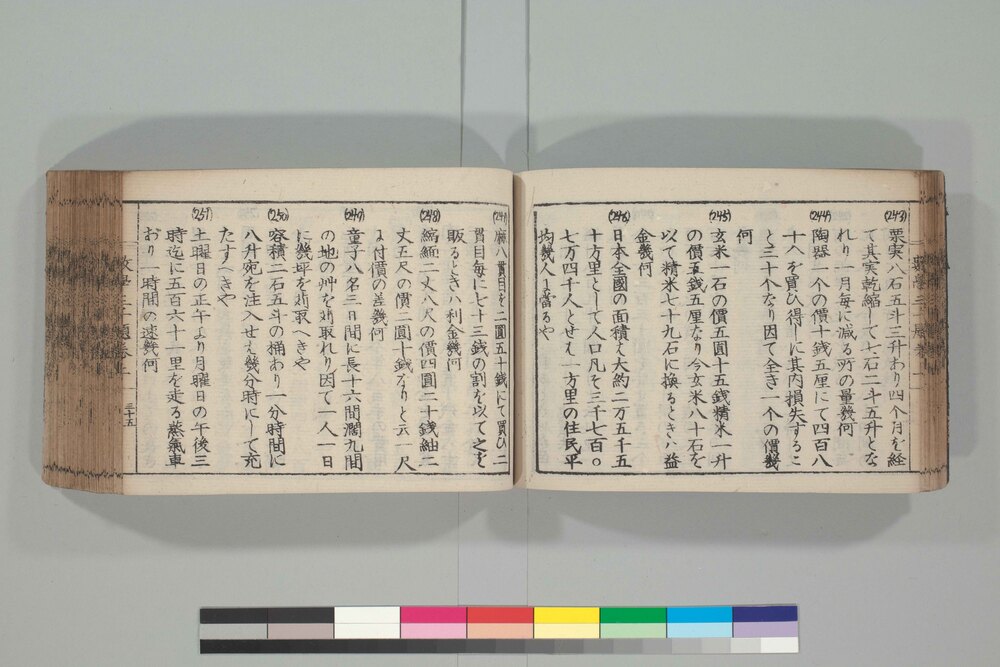 (243)
栗実八石五斗三升わり四个月を経
て其実乾縮して七石二斗五升とな
れり一月毎に減る所の量幾何
(244)
陶器一个の價十銭五厘にて四百八
十个を買ひ得しに其内損失するこ
と三十个なり因て全き一个の價幾
何
(245)
玄米一石の價五圓十五銭精米一升
の價五銭五厘なり今玄米八十石を
以て精米七十九石に換るときハ益
金幾何
(246)
日本全國の面積ハ大約二万五千五
十方里として人口凡そ三千七百〇
七万四千人とせハ一方里の住民平
均幾人に當るや
(247)
麻八貫目を二圓五十銭にて買ひ二
貫目毎に七十三銭の割を以て之を
販るときハ利金幾何
(248)
縮緬二丈八尺の價四圓二十銭紬二
丈五尺の價二圓十銭なりと云一尺
に付價の差幾何
(249)
童子八名三日間に長十六間濶九間
の地の艸を苅取れり因て一人一日
に幾坪を苅取へきや
(250)
容積二石五斗の桶あり一分時間に
八升宛を注入せハ幾分時にして充
たすへきや
(251)
土曜日の正午より月曜日の午後三
時迄に五百六十一里を走る蒸氣車
あり一時間の速幾何
三十五